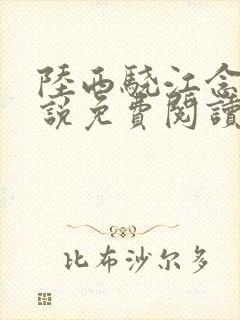 陸西驍江念
說免費閱讀
比布沙尔多